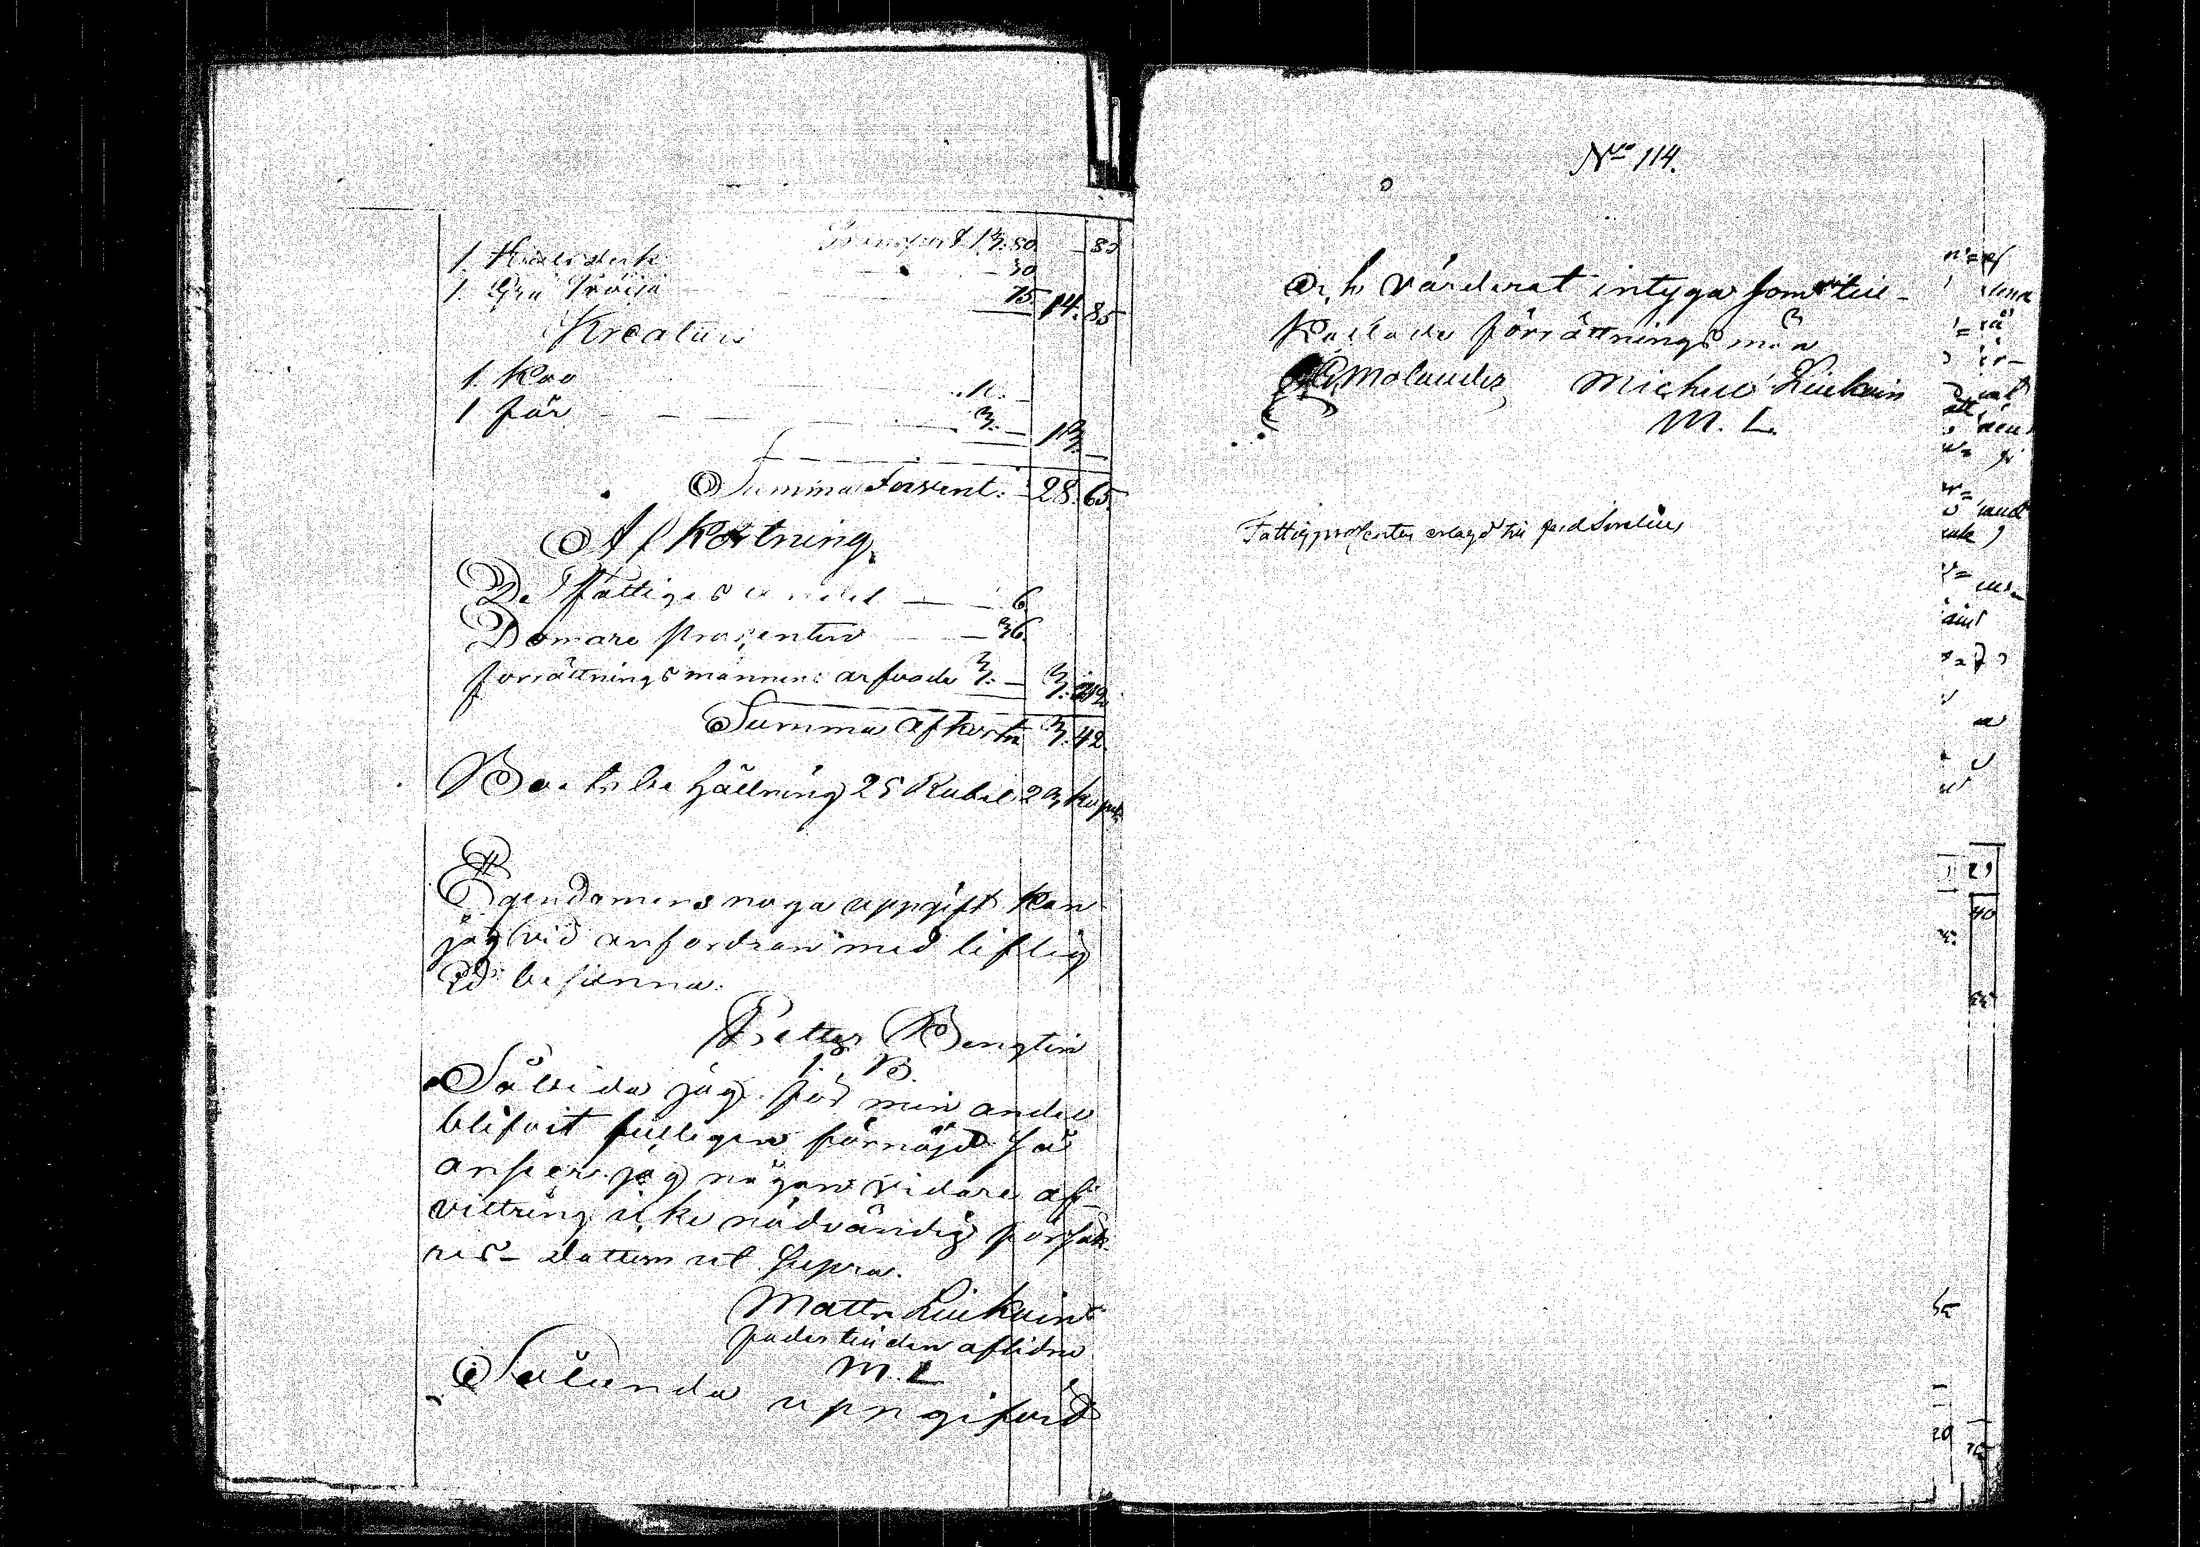 Transport 13. 80 – 80
1. Halsduk – 30
1. Grå Tröija 75. 14. 85
Kreatur
1. Koo 10. –
1 får 3. – 13. –
Summa Invent. 28. 65.
Afkortning
De fattigas andel – 6.
Domare procenten – 36.
förrättningsmännens arfvode 3. – 3. 42.
Summa afkortn 3. 42.
Boets behållning 25 Rubel 23 kopek
Egendomens noga uppgift kan
jag vid anfordran med liflig
Ed besanna.
Petter Bengtin
P. B.
Såvida jag för min andel
blifvit fulligen förnöjd så
anser jag någon vidare af-
vittring icke nödvändig försäk-
ras – Datum ut Supra.
Matts Liukoin
fader till den aflidne
M. L
Sålunda uppgifvid
Nro 114.
och värderat intyga som till-
kallade förrättningsmän
Molander Michel Liukoin
M. L.
Fattigprocenten erlagd till